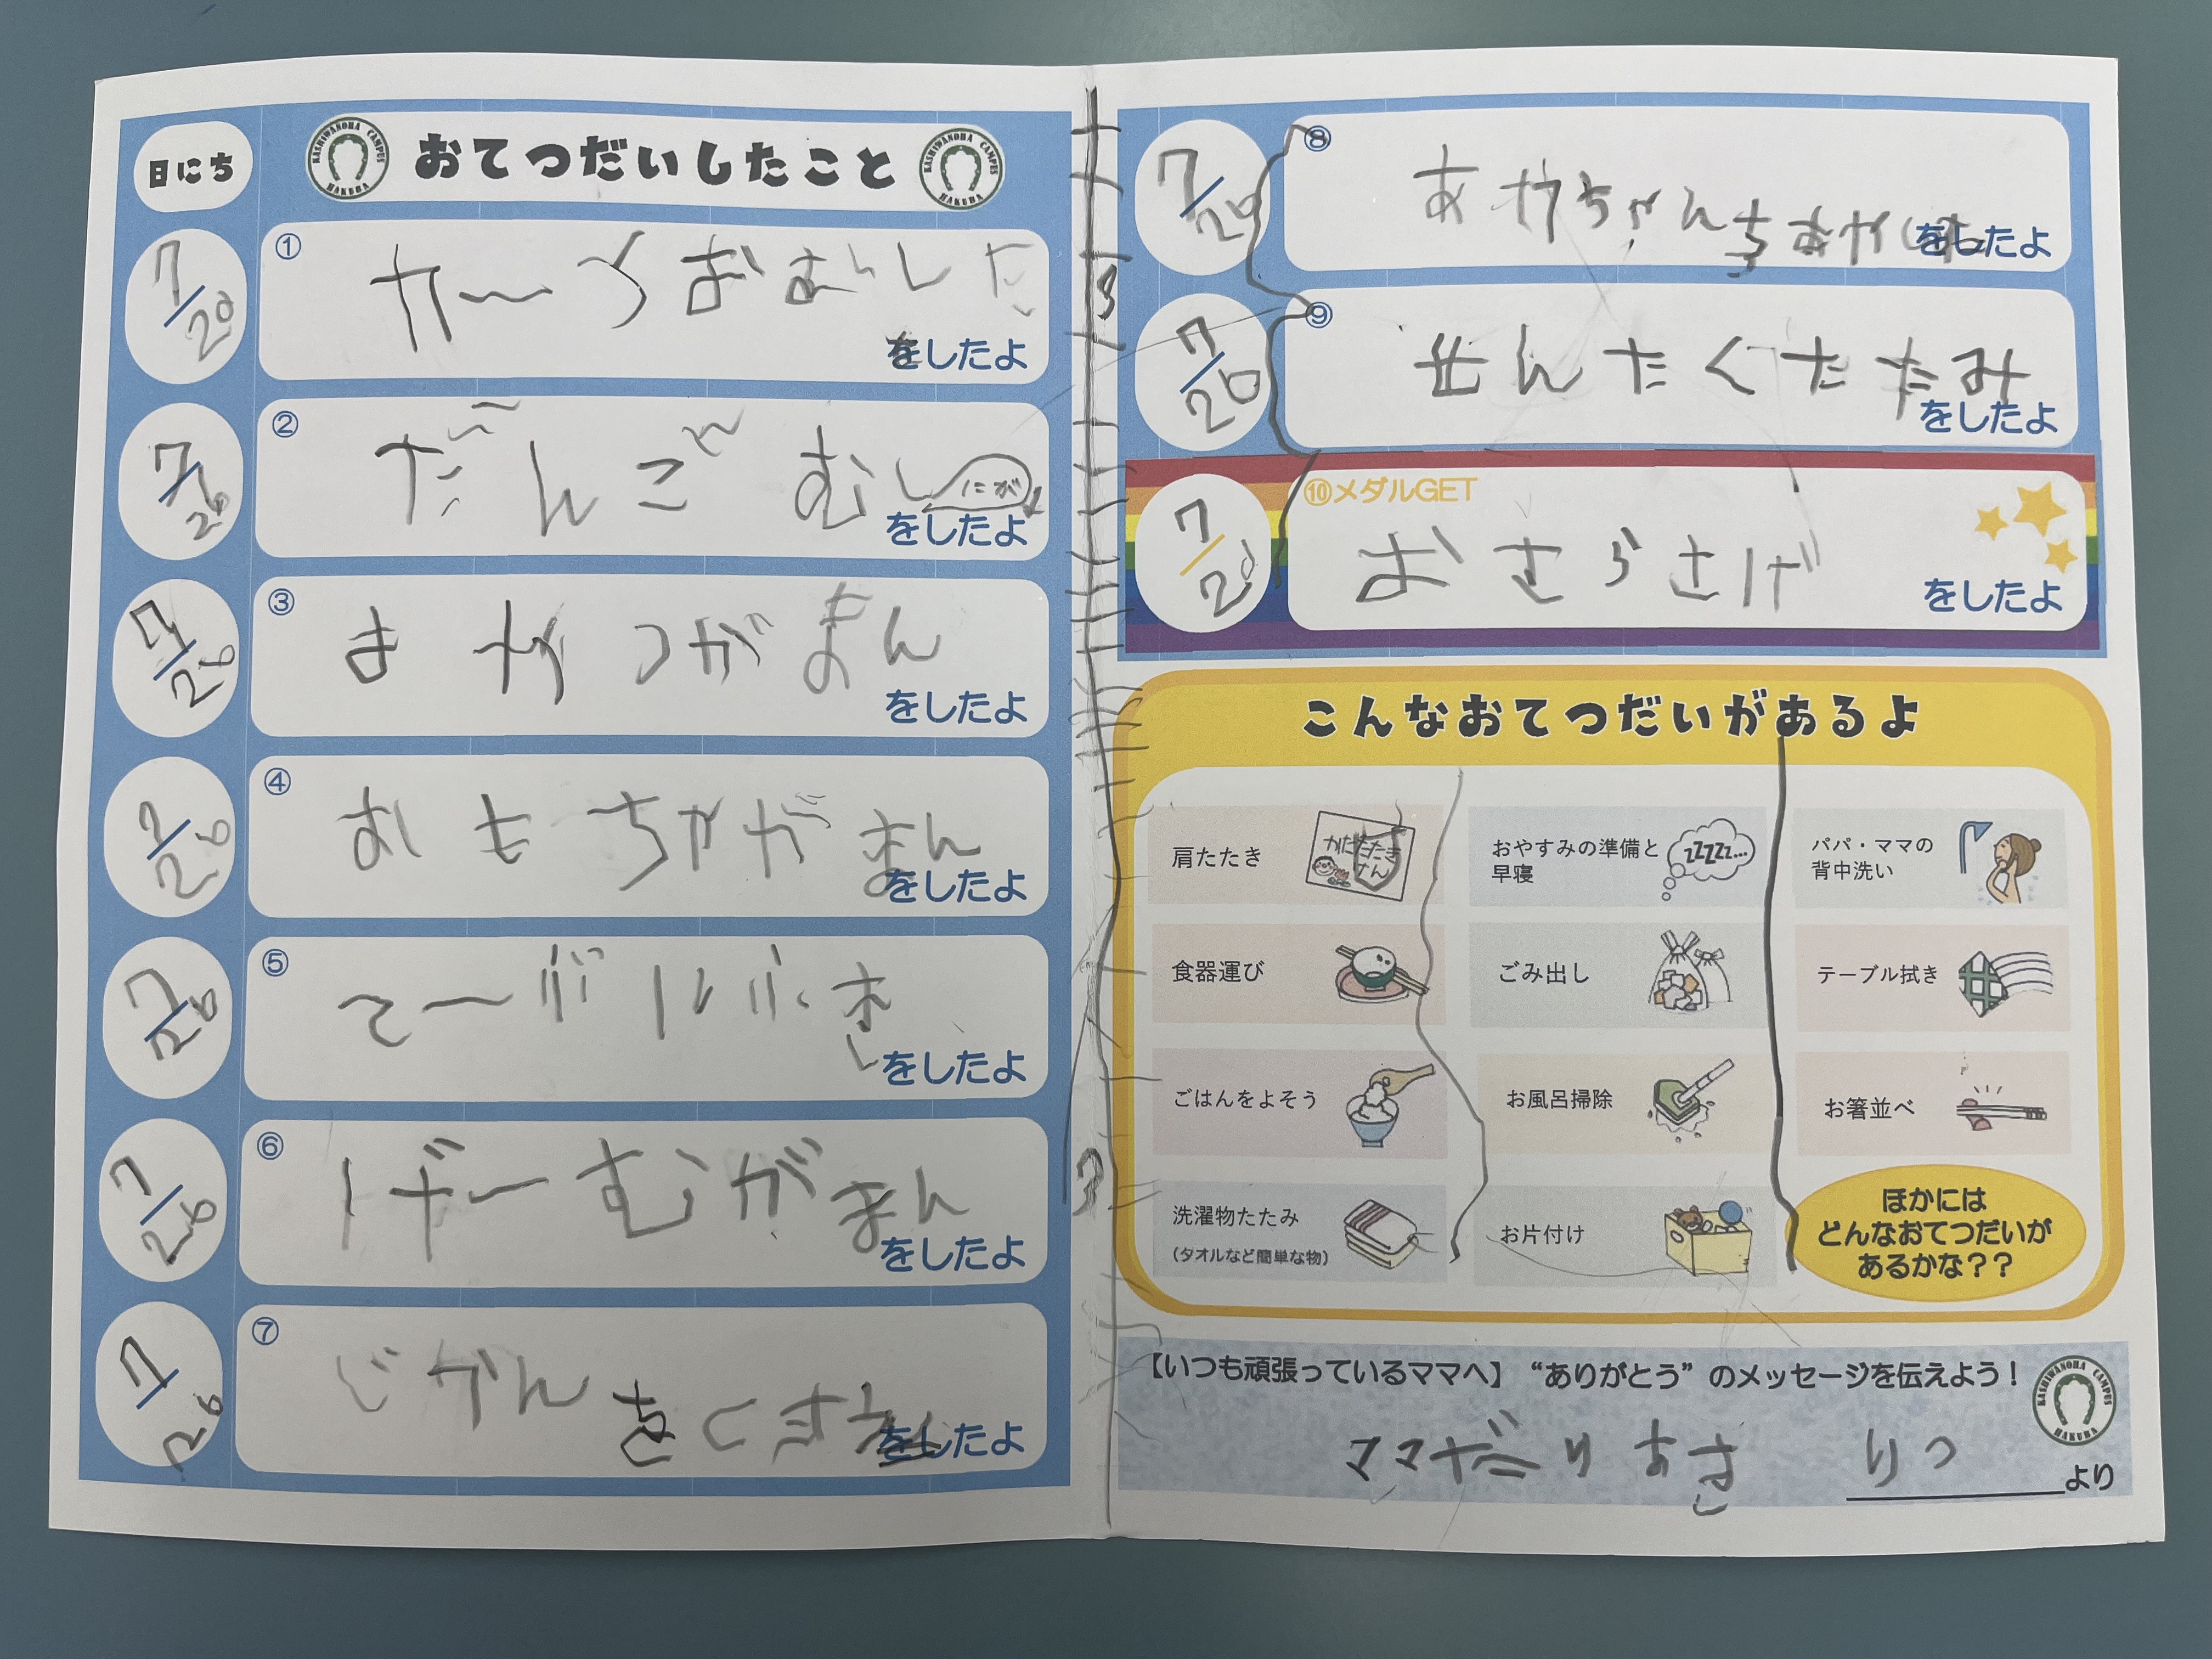 日にち
おてつだいしたこと
KASHIWANOHA CAMPUS HAKUBA
KASHIWANOHA CAMPUS HAKUBA
7/20
①
をしたよ
7/26
②
だんごむし
にが
をしたよ
7/26
③
がまん
をしたよ
7/26
④
おもちゃがまん
をしたよ
7/26
⑤
をしたよ
7/26
⑥
げーむがまん
をしたよ
7/26
⑦
じかんを
をしたよ
7/20
⑧
をしたよ
7/20
⑨
せんたくたたみ
をしたよ
7/20
⑩メダルGET
おさらさげ
をしたよ
こんなおてつだいがあるよ
肩たたき
かたたたきけん
おやすみの準備と
早寝
zzzzz...
パパ・ママの
背中洗い
食器運び
ごみ出し
テーブル拭き
ごはんをよそう
お風呂掃除
お箸並べ
洗濯物たたみ
(タオルなど簡単な物)
お片付け
ほかには
どんなおてつだいが
あるかな??
【いつも頑張っているママへ】 “ありがとう” のメッセージを伝えよう!
KASHIWANOHA CAMPUS HAKUBA
ママ
りつ
より